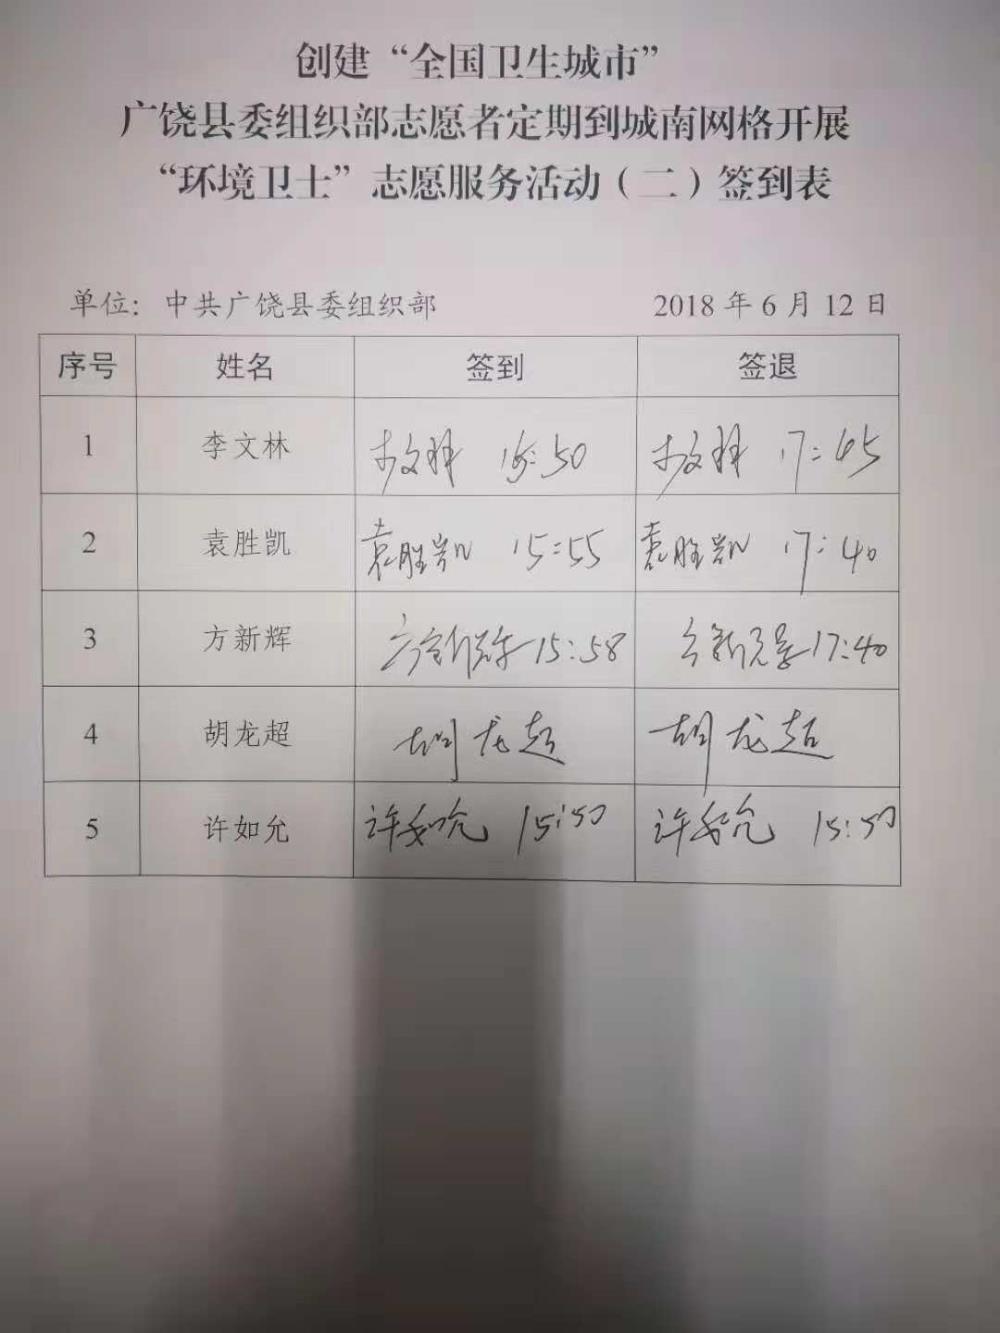 创建“全国卫生城市”
广饶县委组织部志愿者定期到城南网格开展
“环境卫士”志愿服务活动（二）签到表
单位：中共广饶县委组织部 2018 年 6 月 12 日
序号 姓名 签到 签退
1 李文林 李文林 15:50 李文林 17:45
2 袁胜凯 袁胜凯 15:55 袁胜凯 17:40
3 方新辉 方新辉 15:58 方新辉 17:40
4 胡龙超 胡龙超 胡龙超
5 许如允 许如允 15:50 许如允 15:50